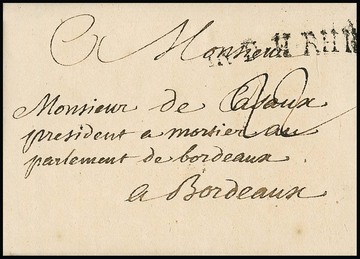 Monsieur
22
Monsieur de Casaux
president a mortier au
parlement de bordeaux
a Bordeaux